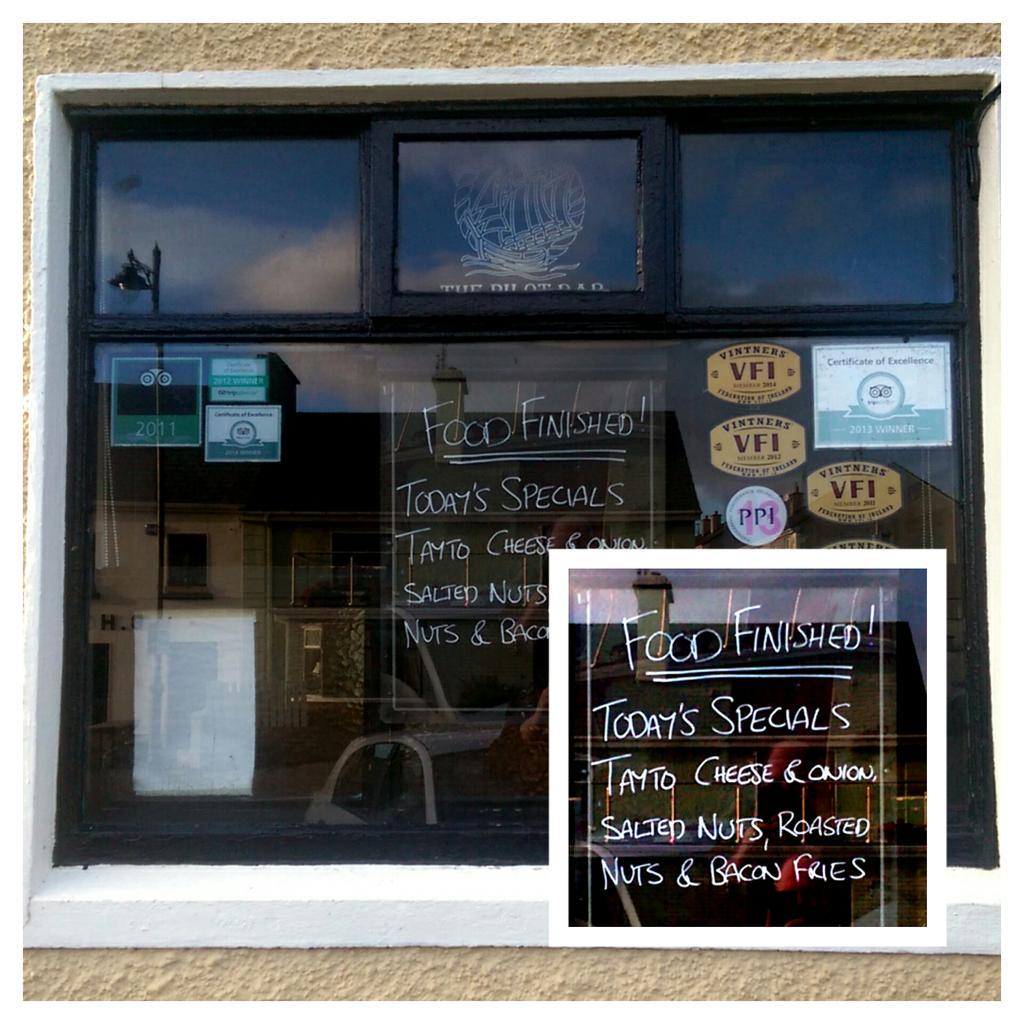 THE PILOT BAR
2011
Certificate of Excellence
2012 WINNER
Certificate of Excellence
2014 WINNER
FOOD FINISHED!
TODAY'S SPECIALS
TAYTO CHEESE & ONION,
SALTED NUTS
NUTS & BACO
VINTNERS'
VFI
MEMBER 2014
FEDERATION OF IRELAND
VINTNERS'
VFI
MEMBER 2012
FEDERATION OF IRELAND
Certificate of Excellence
tripadvisor
2013 WINNER
VINTNERS'
VFI
MEMBER 2011
FEDERATION OF IRELAND
PPI
13
VINTNERS'
H.
FOOD FINISHED!
TODAY'S SPECIALS
TAYTO CHEESE & ONION,
SALTED NUTS, ROASTED
NUTS & BACON FRIES